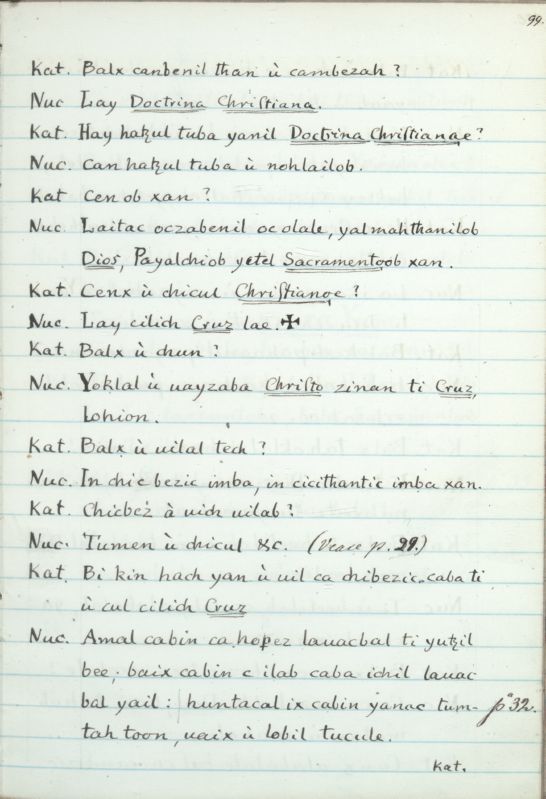 99.
Kat. Balx canbenil than ù cambezah?
Nuc Lay Doctrina Chriſtiana.
Kat. Hay haꜩul tuba yanil Doctrina Chriſtianae?
Nuc. Can haꜩul tuba ù nohlailob.
Kat Cen ob xan?
Nuc. Laitac oczabenil oc olale, yalmahthanilob
Dios, Payalchiob yetel Sacramentoob xan.
Kat. Cenx ù chicul Chriſtianoe?
Nuc. Lay cilich Cruz lae. ✠
Kat. Balx ù chun?
Nuc. Yoklal ù uayzaba Chriſto zinan ti Cruz,
Lohion.
Kat. Balx ù uilal tech?
Nuc. In chic bezic imba, in cicithantic imba xan.
Kat. Chicbez à uich uilab?
Nuc. Tumen ù chicul &c. (Vease p. 29.)
Kat. Bi kin hach yan ù uil ca chibezic caba ti
ù cul cilich Cruz
Nuc. Amal cabin ca hopez lauacbal ti yuꜩil
bee, baix cabin c ilab caba ichil lauac
bal yail: huntacal ix cabin yanac tum- pª 32.
tah toon, uaix ù lobil tucule.
Kat.